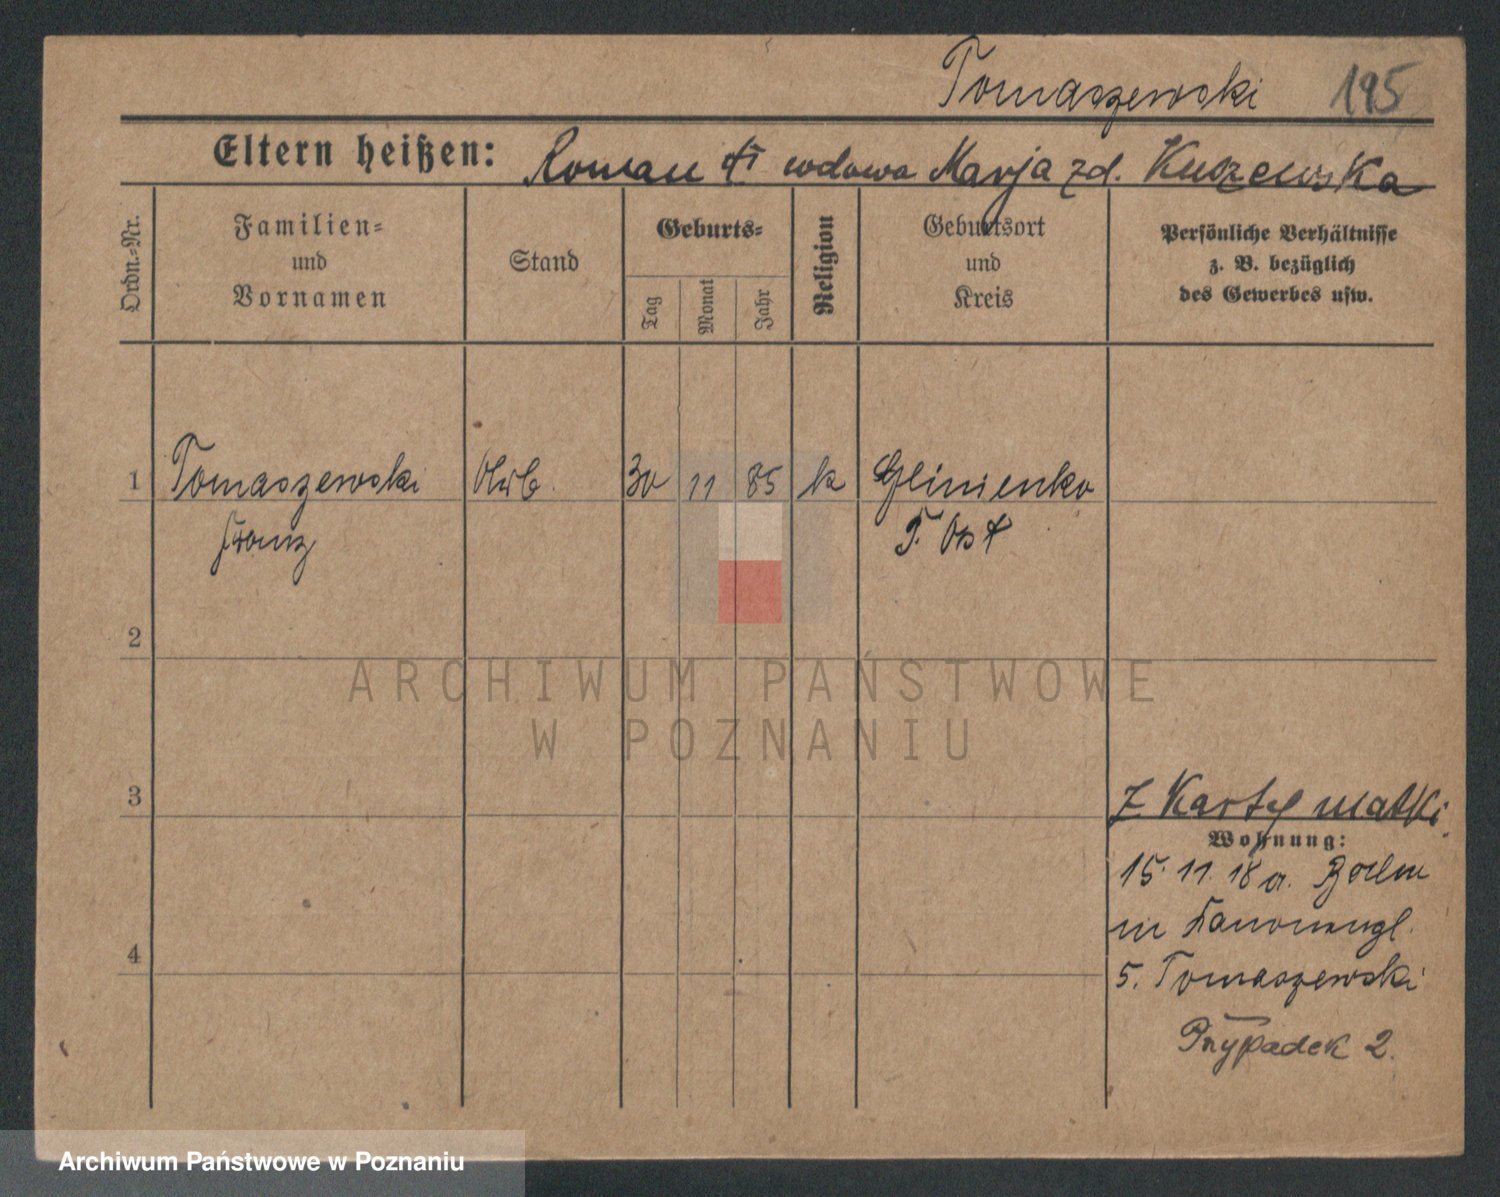 Tomaszewski 195
Eltern heißen: Roman † wdowa Marja zd. Kuszewska
Ordn.-Nr.
Familien-
und
Vornamen
Stand
Geburts-
Tag
Monat
Jahr
Religion
Geburtsort
und
Kreis
Persönliche Verhältnisse
z. B. bezüglich
des Gewerbes usw.
1 Tomaszewski 30 11 85 k Glinienko
Franz P. Ost
2
3
4
Z Karty matki
Wohnung:
15. 11. 18 a.
in
5. Tomaszewski
Przypadek 2.
ARCHIWUM PAŃSTWOWE
W POZNANIU
Archiwum Państwowe w Poznaniu